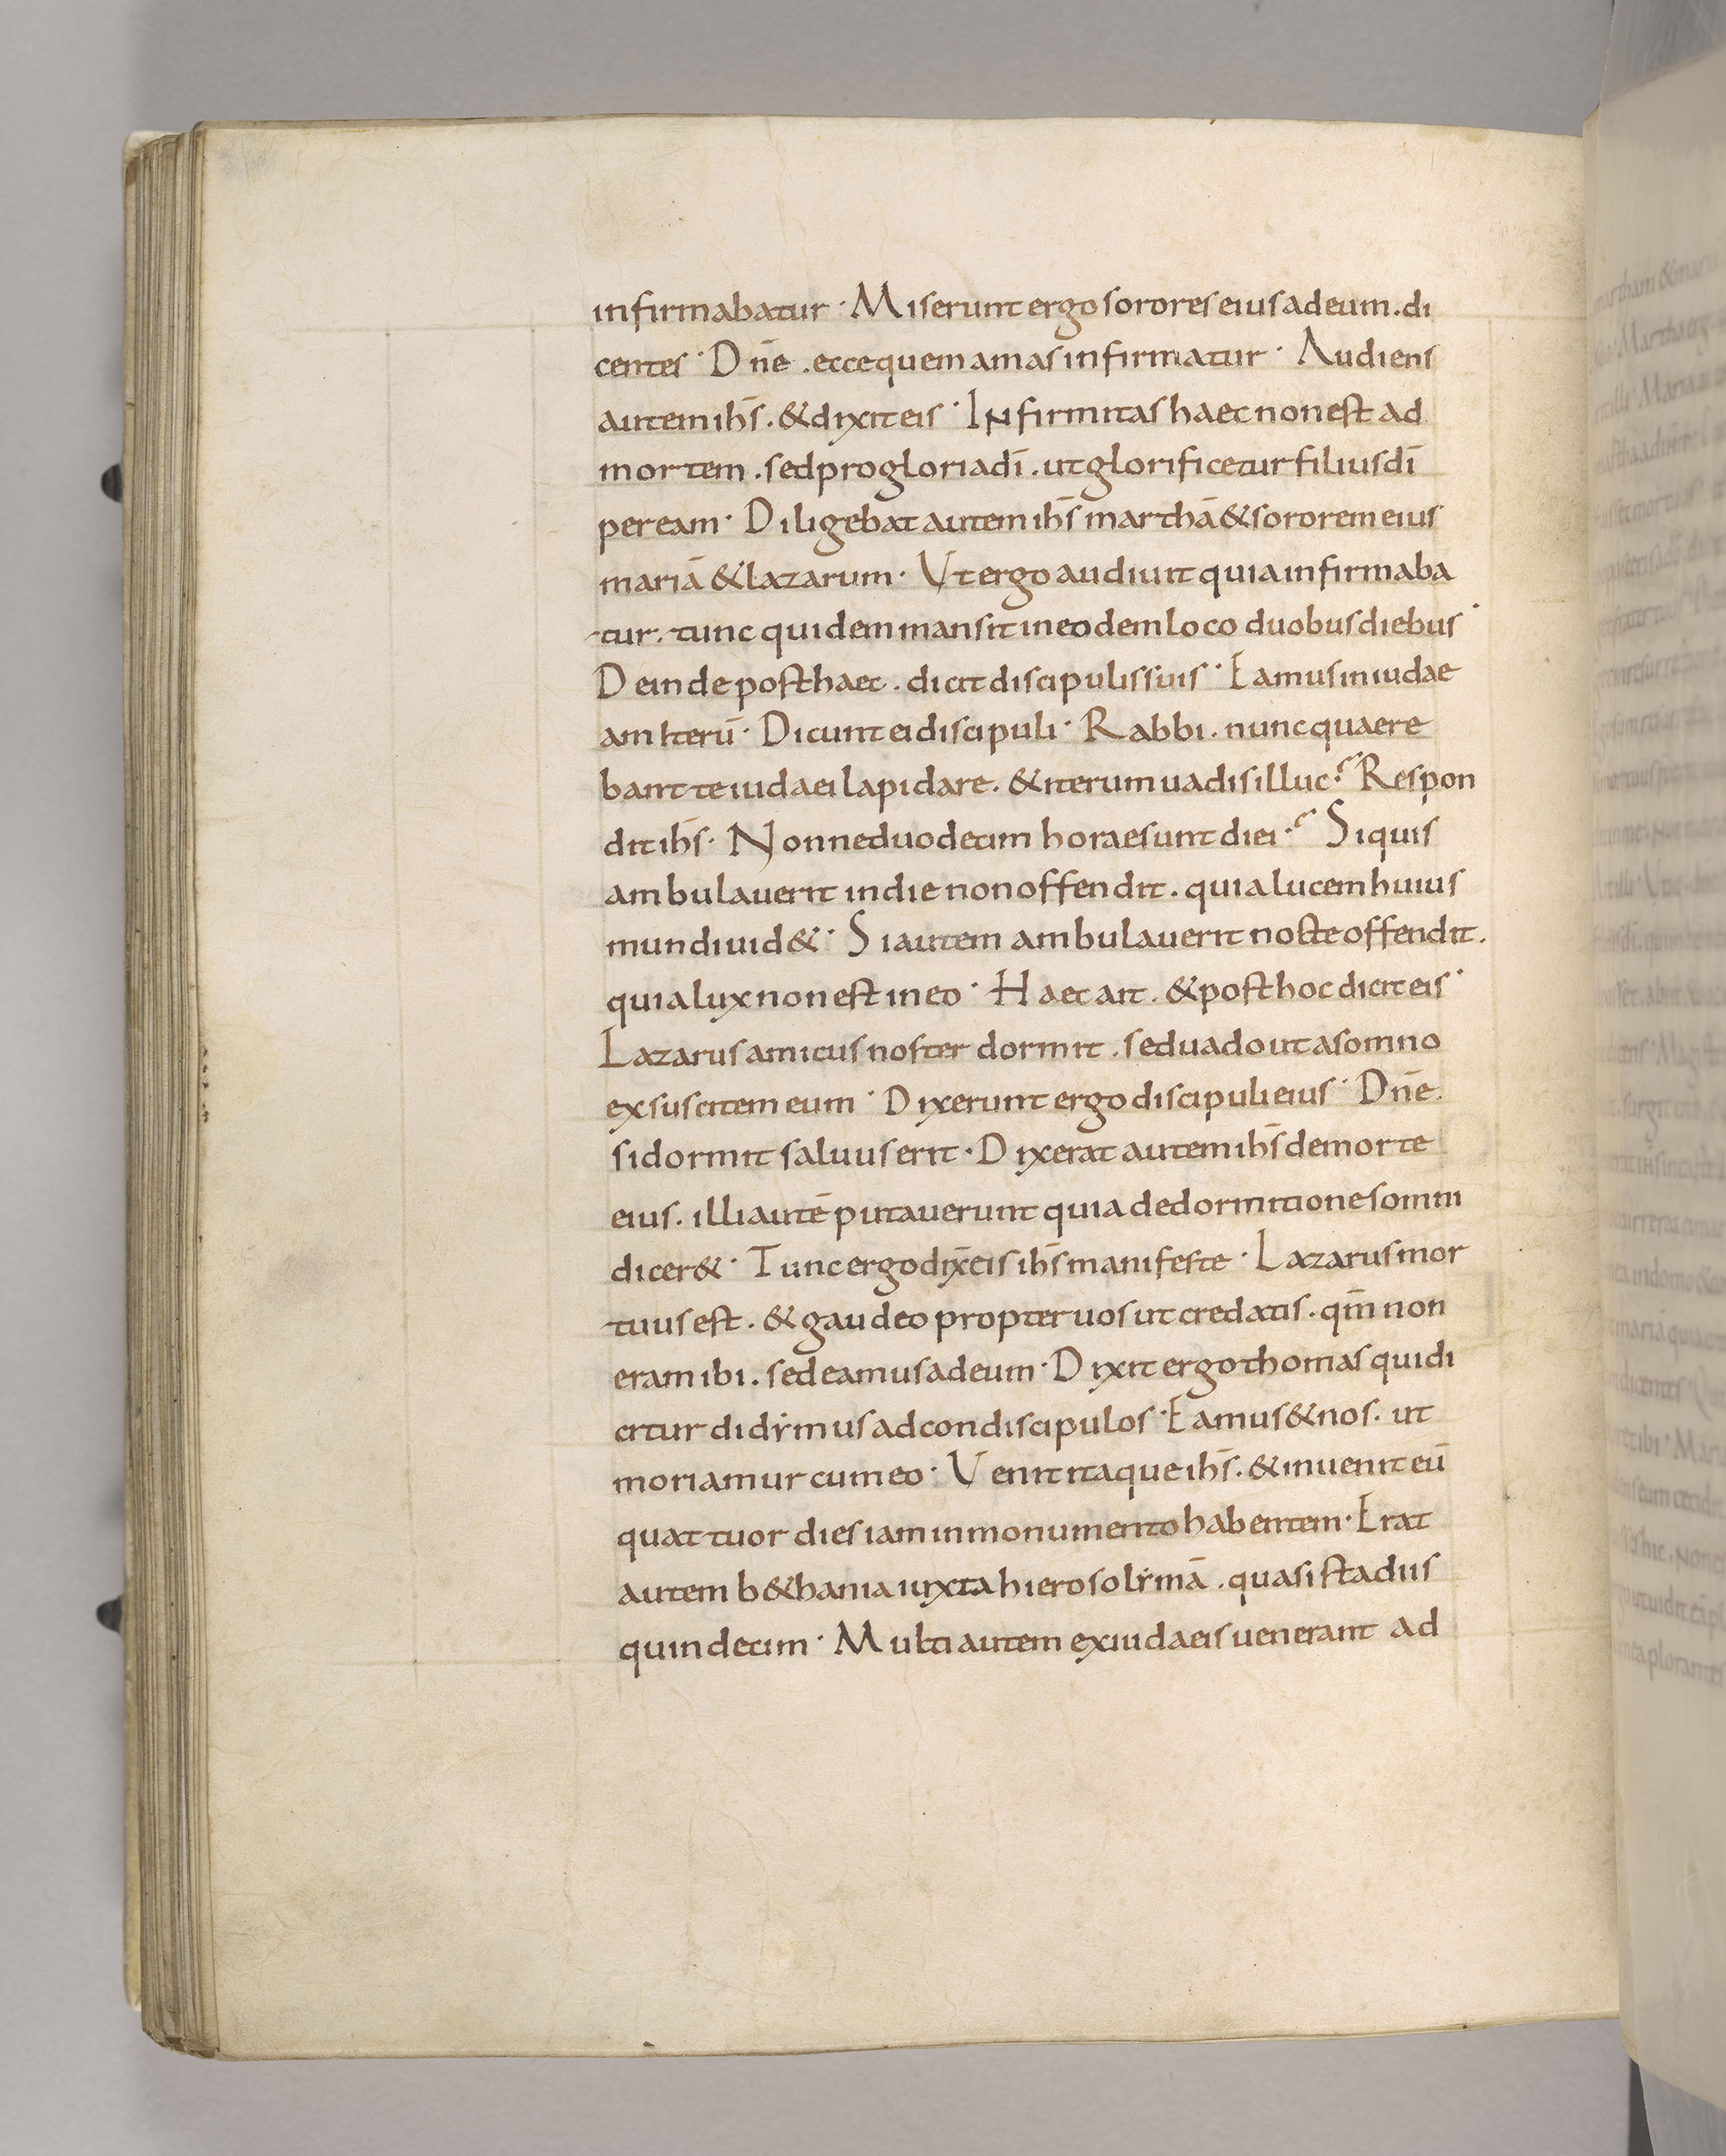 infirmabatur · Miserunt ergo sorores eius ad eum . di
centes · Dn̄e . ecce quem amas infirmatur · Audiens
autem ih̄s . & dixit eis · Infirmitas haec non est ad
mortem . sed pro gloria dī . ut glorificetur filius dī
per eam · Diligebat autem ih̄s marthā & sororem eius
mariā & lazarum · Ut ergo audiuit quia infirmaba
tur . tunc quidem mansit in eodem loco duobus diebus ·
Deinde post haec . dicit discipulis suis · Eamus in iudae
am iterū · Dicunt ei discipuli · Rabbi . nunc quaere
bant te iudaei lapidare . & iterum uadis illuc? Respon
dit ih̄s · Nonne duodecim horae sunt diei? Si quis
ambulauerit in die non offendit . quia lucem huius
mundi uid& · Si autem ambulauerit nocte offendit .
quia lux non est in eo · Haec ait . & post hoc dicit eis ·
Lazarus amicus noster dormit . sed uado ut a somno
exsuscitem eum · Dixerunt ergo discipuli eius · Dn̄e .
si dormit saluus erit · Dixerat autem ih̄s de morte
eius . illi autē putauerunt quia de dormitione somni
dicer& · Tunc ergo dix̄ eis ih̄s manifeste · Lazarus mor
tuus est . & gaudeo propter uos ut credatis . qm̄ non
eram ibi . sed eamus ad eum · Dixit ergo thomas qui di
citur didẏmus ad condiscipulos · Eamus & nos . ut
moriamur cum eo · Venit itaque ih̄s . & inuenit eū
quattuor dies iam in monumento habentem · Erat
autem b&hania iuxta hierosolẏmā . quasi stadiis
quindecim · Multi autem ex iudaeis uenerant ad